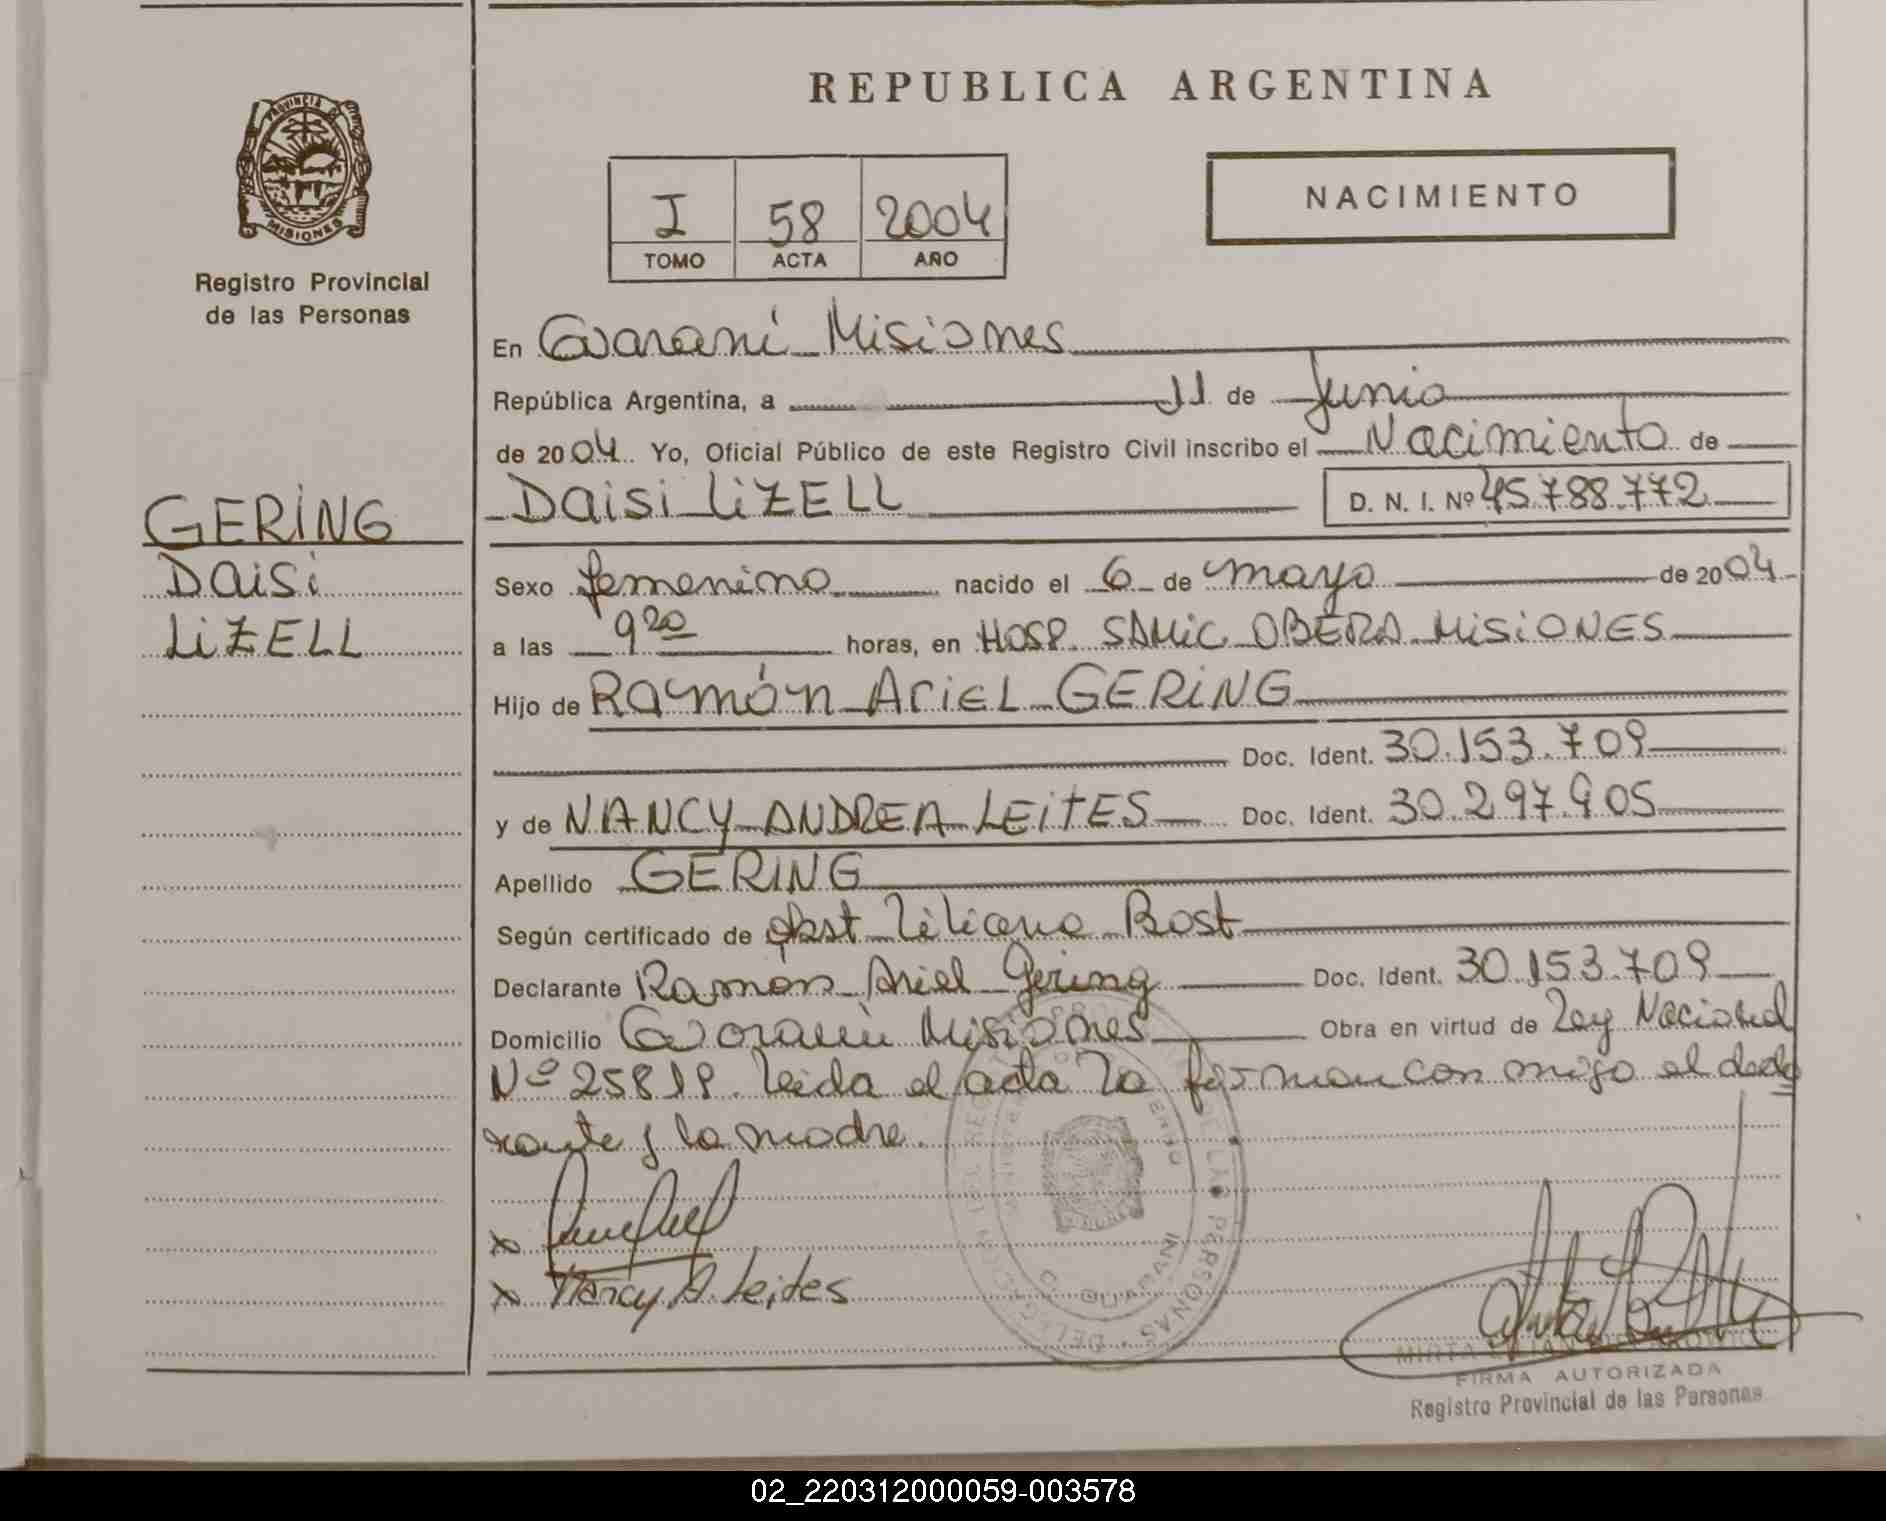 PROVINCIA
MISIONES
Registro Provincial
de las Personas
GERING
Daisi
LiZELL
REPUBLICA ARGENTINA
I 58 2004
TOMO ACTA AÑO
NACIMIENTO
En Guarani Misiones
República Argentina, a 11 de Junio
de 2004 Yo, Oficial Público de este Registro Civil inscribo el Nacimiento de
Daisi LiZELL D. N. I. Nº 45.788.772
Sexo femenino nacido el 6 de mayo de 2004
a las 9 20 horas, en HOSP. SAMiC OBERA MiSiONES
Hijo de Ramón Ariel GERiNG
Doc. Ident. 30.153.709
y de NANCY ANDREA LEiTES Doc. Ident. 30.297.905
Apellido GERING
Según certificado de obst Liliana Rost
Declarante Ramon Ariel Gering Doc. Ident. 30.153.709
Domicilio Guarani Misiones Obra en virtud de Ley Nacional
Nº 25819. Leida el acta la firman con migo el decla
rante y la madre.
x
x Nancy A. Leites
GUARANI
DE LAS PERSONAS
MIRTA
FIRMA AUTORIZADA
Registro Provincial de las Personas
02_220312000059-003578